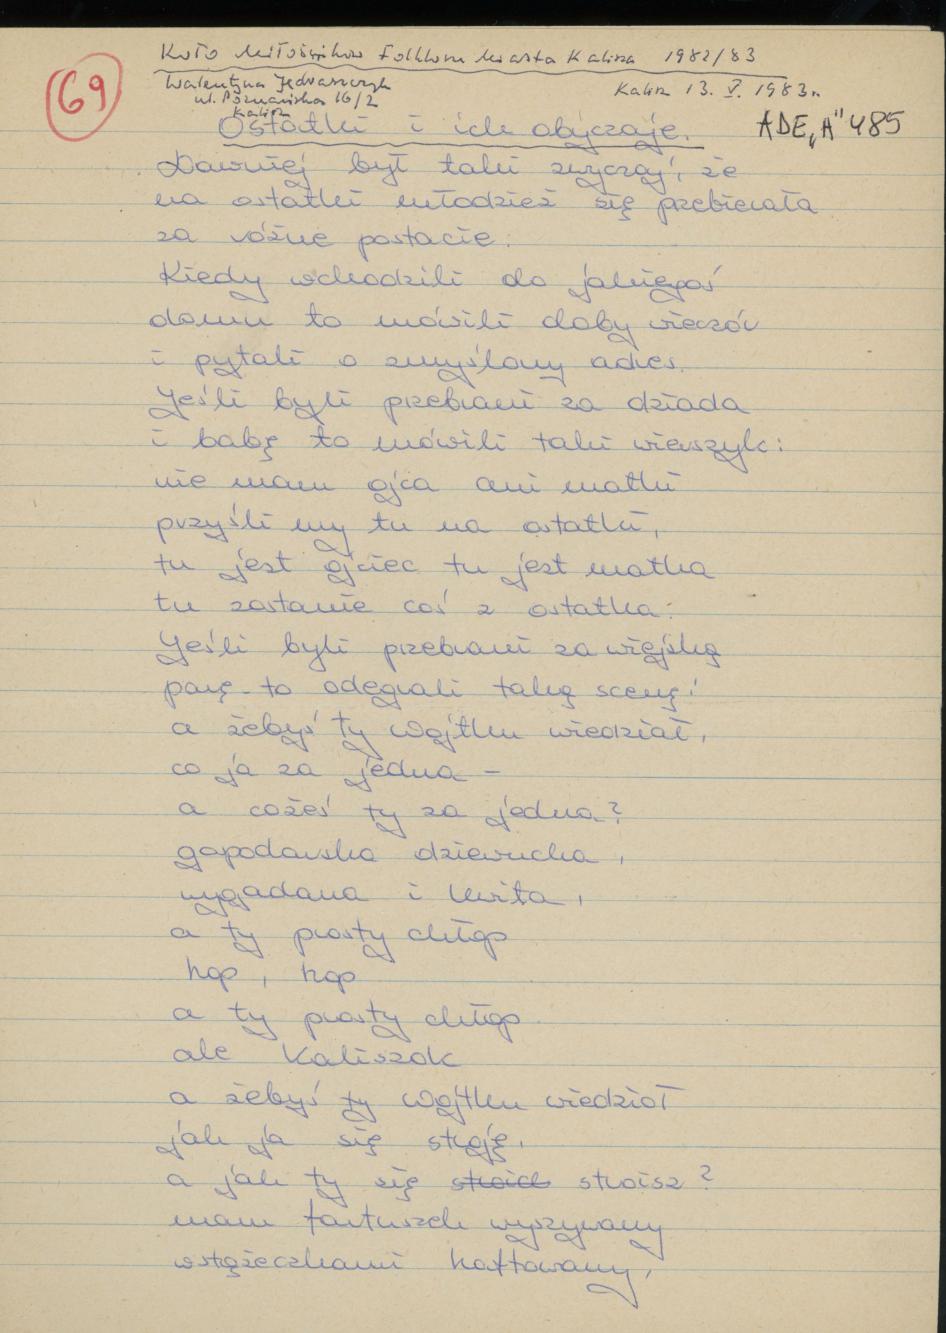 69
Koło Miłośników Folkloru Miasta Kalisza 1982/83
Walentyna Jędraszczyk
ul. Poznańska 16/2
Kalisz
Kalisz 13. V. 1983r.
Ostatki i ich obyczaje.
ADE „A" 485
Dawniej był taki zwyczaj, że
na ostatki młodzież się przebierała
za różne postacie.
Kiedy wchodzili do jakiegoś
domu to mówili doby wieczór
i pytali o zmyślony adres.
Jeśli byli przebrani za dziada
i babę to mówili taki wierszyk:
nie mam ojca ani matki
przyśli my tu na ostatki,
tu jest ojciec tu jest matka
tu zostanie coś z ostatka.
Jeśli byli przebrani za wiejską
parę to odegrali taką scenę:
a żebyś ty Wojtku wiedział,
co ja za jedna –
a cożeś ty za jedna?
gapodarska dziewucha,
wygadana i kwita,
a ty prosty chłop
hop, hop
a ty prosty chłop
ale Kaliszok
a żebyś ty Wojtku wiedzioł
jak ja się stroję,
a jak ty się stroich stroisz?
mam fartuszek wyszywany
wstążeczkami haftowany,